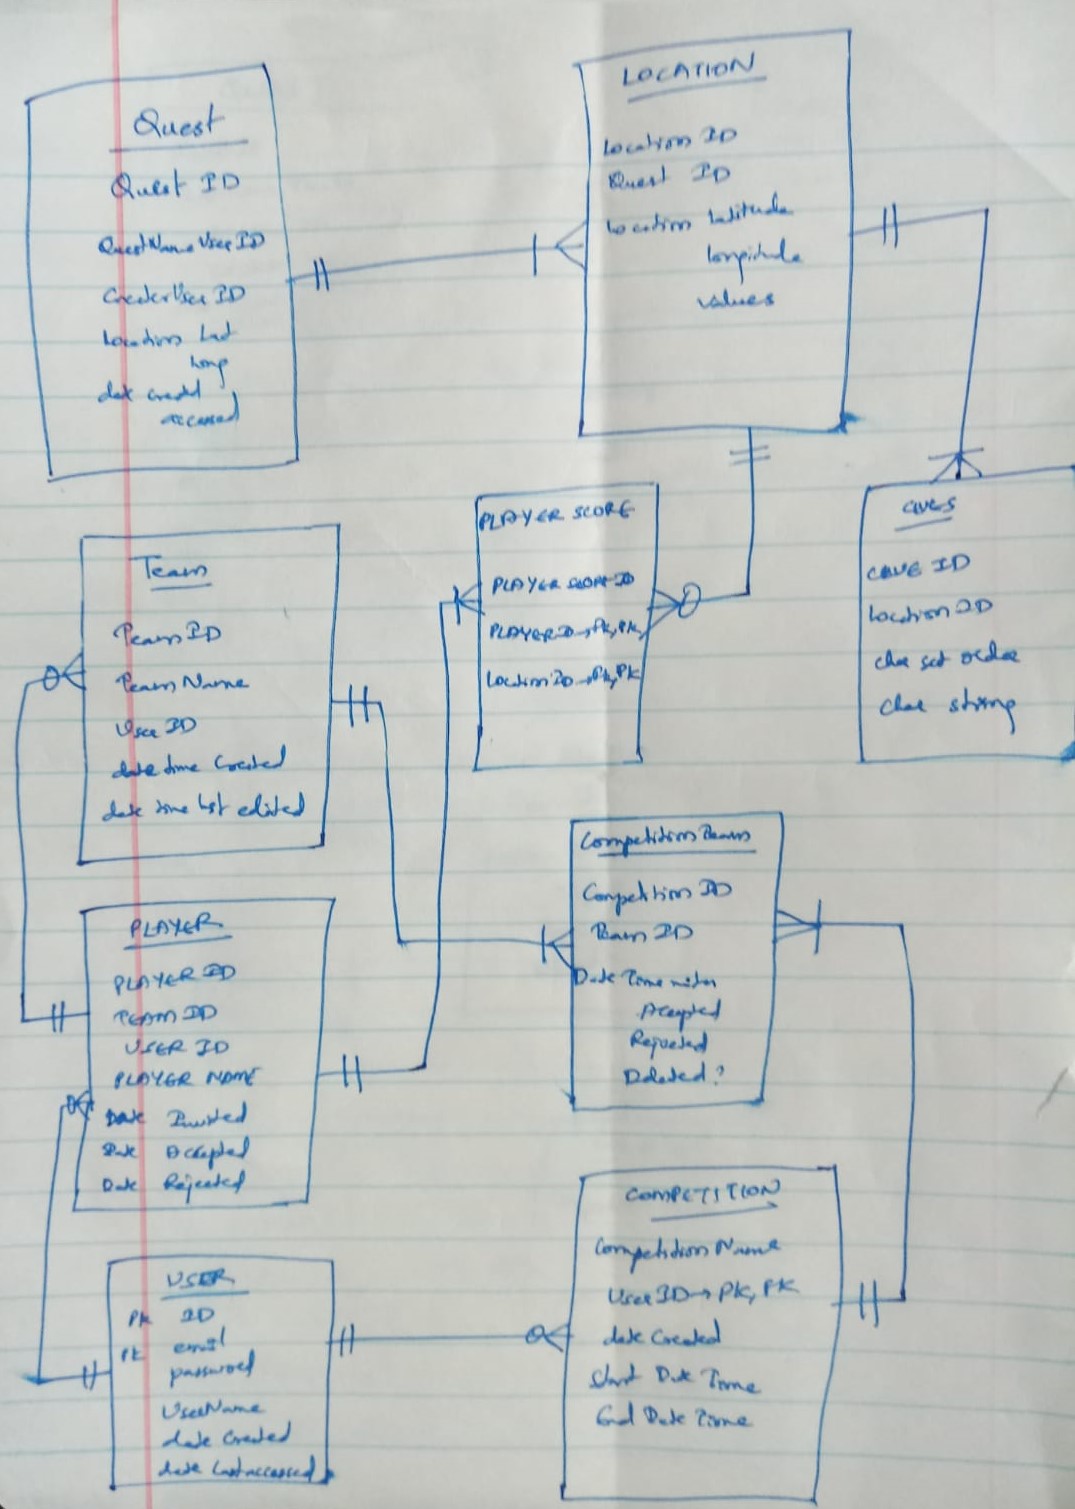 Quest
Quest ID
QuestName User ID
Creater User ID
Location Lat
Long
date created
accessed
LOCATION
Location ID
Quest ID
Location Latitude
longitude
values
PLAYER SCORE
PLAYER SCORE ID
PLAYER ID → PK, PK
Location ID → PK, PK
CLUES
CLUE ID
Location ID
clue set order
clue string
Team
Team ID
Team Name
User ID
date time Created
date time last edited
Competition Team
Competition ID
Team ID
Date Time
Accepted
Rejected
Deleted?
PLAYER
PLAYER ID
TEAM ID
USER ID
PLAYER NAME
Date Invited
Date Accepted
Date Rejected
COMPETITION
Competition Name
User ID → PK, PK
date Created
Start Date Time
End Date Time
USER
PK ID
PK email
password
UserName
date Created
date Last accessed